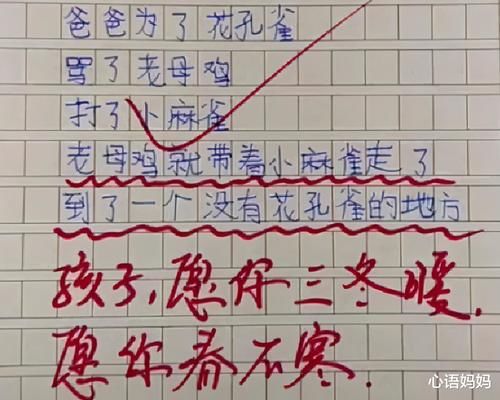 爸爸为了花孔雀
骂了老母鸡
打了小麻雀
老母鸡就带着小麻雀走了
到了一个没有花孔雀的地方
孩子,愿你三冬暖,
愿你春不寒.
心语妈妈